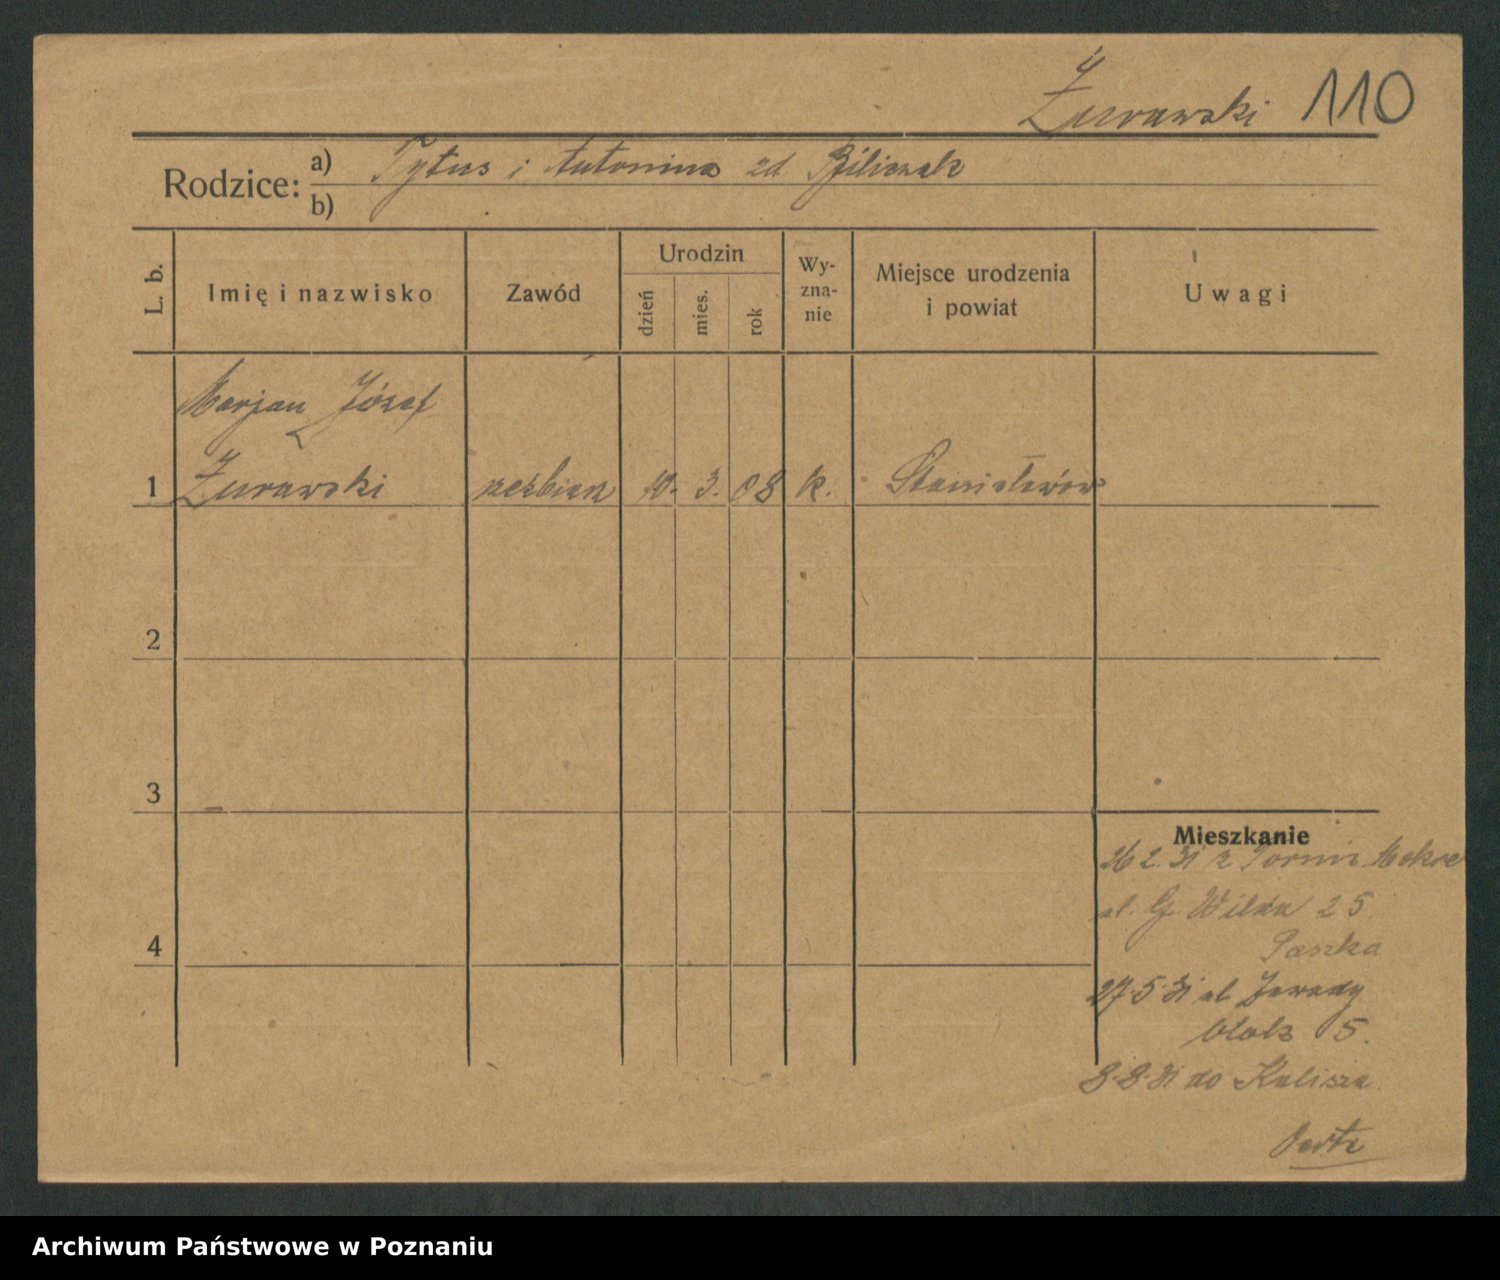 Żurawski 110
Rodzice: a) Tytus i Antonina zd Biliczak
b)
L. b.
Imię i nazwisko
Zawód
Urodzin
dzień
mies.
rok
Wy-
zna-
nie
Miejsce urodzenia
i powiat
Uwagi
Marjan Józef
1 Żurawski rzeźbiarz 10. 3. 08 k. Stanisławów
2
3
4
Mieszkanie
26 2. 31 z
ul. G. Wilda 25
27.5.31 ul.
blok 5.
8.8.31 do Kalisza
Archiwum Państwowe w Poznaniu